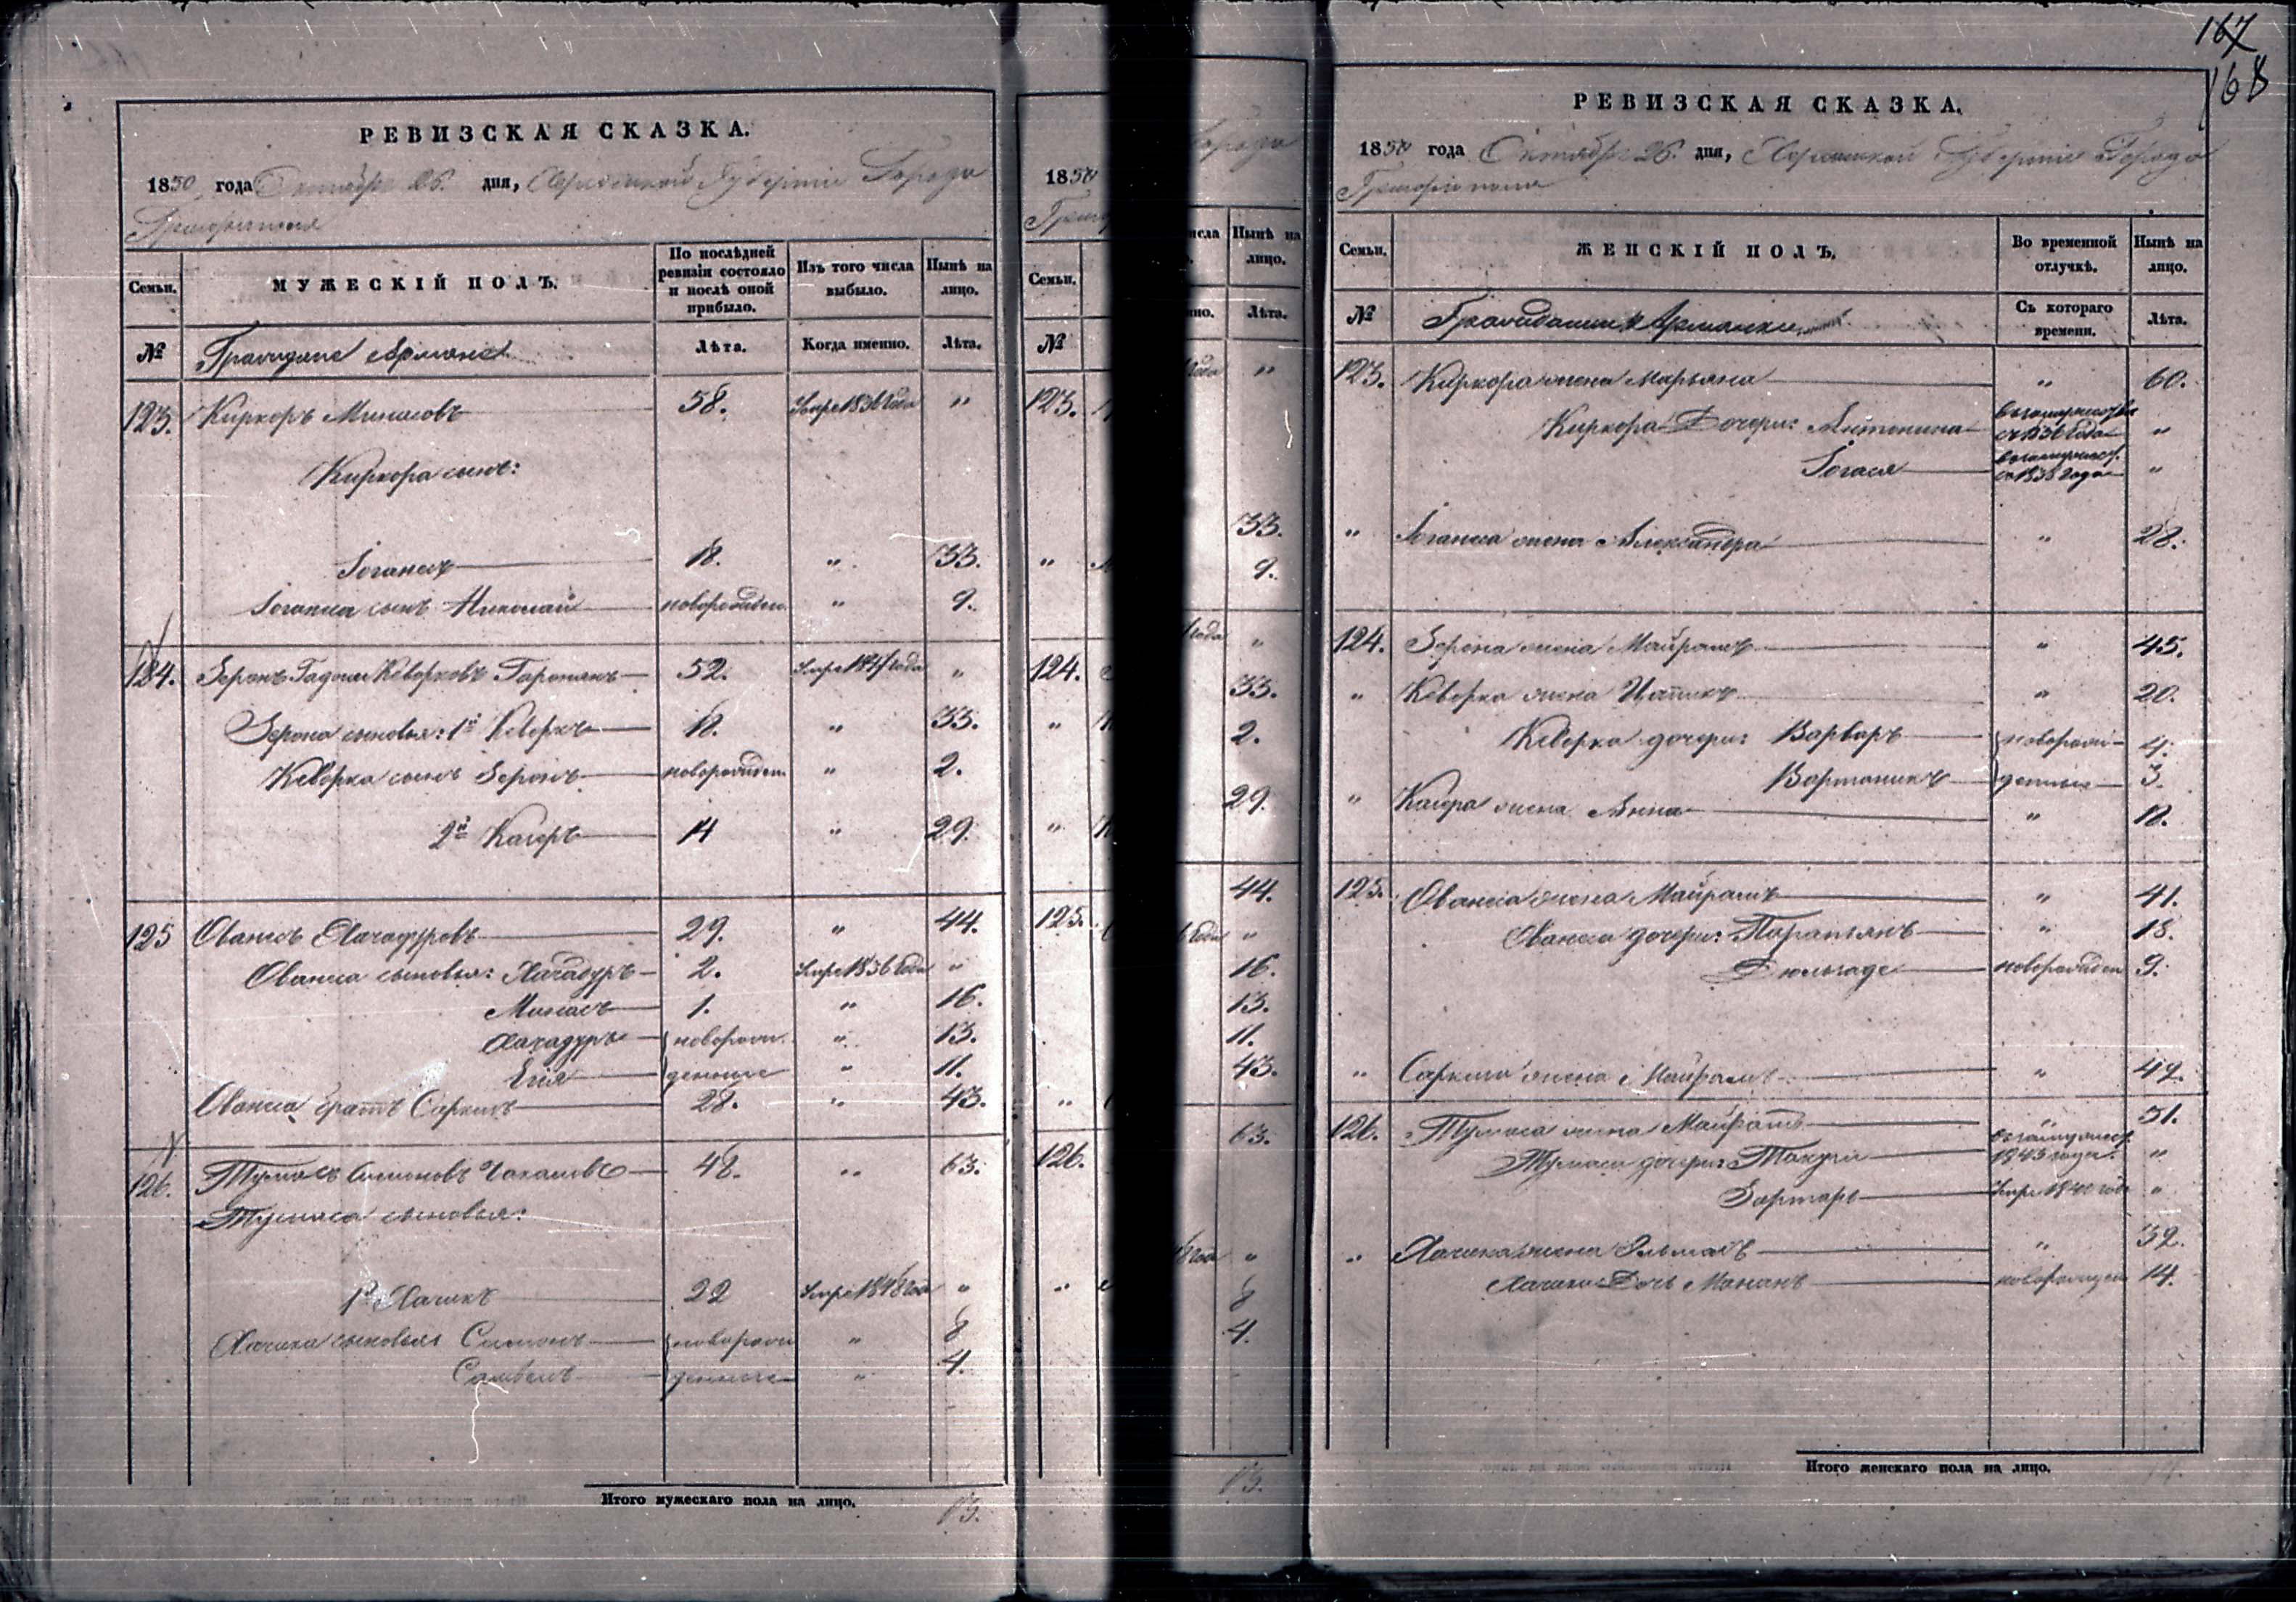 РЕВИЗСКАЯ СКАЗКА.
1850 года Октября 26. дня, Херсонской Губерніи Города
Григоріополя
Семьи.
МУЖЕСКІЙ ПОЛЪ.
По послѣдней ревизіи состояло и послѣ оной прибыло.
Изъ того числа выбыло.
Нынѣ на лицо.
№
Граждане Армяне
Лѣта.
Когда именно.
Лѣта.
123. Киркоръ Минасовъ 58. Умре 1836 года "
Киркора сынъ:
Іоганесъ 18. " 33.
Іоганеса сынъ Николай новорожден. " 9.
124. Зеронъ Кеворковъ 52. Умре 1841 года "
Зерона сыновья: 1й Кеворкъ 18. " 33.
Кеворка сынъ Зеронъ новорожден " 2.
2й Кагоръ 14 " 29.
125 Ованесъ Хачадуровъ 29. " 44.
Ованеса сыновья: Хачадуръ 2. Умре 1836 года "
Минасъ 1. " 16.
Хачадуръ новорож. " 13.
Егія денные " 11.
Ованеса братъ Саркисъ 28. " 43.
126. Тумасъ Симоновъ 48. " 63.
Тумаса сыновья:
1й Хачикъ 22 Умре 1848 года "
Хачика сыновья Симонъ новорож " 8
Самвелъ денные " 4.
Итого мужескаго пола на лицо. 13.
1850
Семьи.
№
123.
"
124.
"
"
125.
"
126.
"
Города
Нынѣ на лицо.
Лѣта.
года "
33.
9.
года "
33.
2.
29.
44.
года "
16.
13.
11.
43.
63.
"
8
4.
13.
167
168
РЕВИЗСКАЯ СКАЗКА.
1850 года Октября 26. дня, Херсонской Губерніи Города
Григоріополя
Семьи.
ЖЕНСКІЙ ПОЛЪ.
Во временной отлучкѣ.
Нынѣ на лицо.
№
Армянки
Съ котораго времени.
Лѣта.
123. Киркора жена Марьяна " 60.
Киркора Дочери: Антонина въ замужествѣ съ 1836 года "
въ замужест. съ 1838 года "
" Іоганеса жена Александра " 28.
124. Зерона жена Майрамъ " 45.
" Кеворка жена " 20.
Кеворка дочери: Варваръ новорож- 4.
Вартаникъ денные 3.
" Кагора жена Анна " 18.
125. Ованеса жена Майрамъ " 41.
Ованеса дочери: " 18.
новорожден 9.
" Саркиса жена Майрамъ " 42.
126. Тумаса жена Майрамъ " 51.
Тумаса дочери: Такуги въ замужест. 1843 года. "
Зартаръ Умре 1840 года "
" Хачика жена Элмасъ " 32.
Хачика Дочь Мананъ новорожден 14.
Итого женскаго пола на лицо.